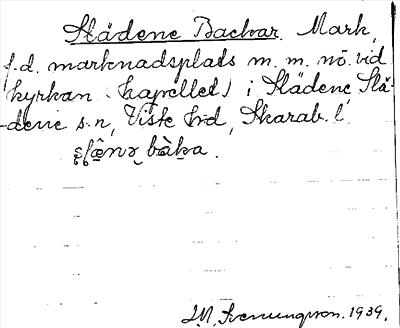 Slädene Backar. Mark,
f.d. marknadsplats m.m. nö. vid
kyrkan (kapellet) i Slädene Slä-
-dene s:n, Viste hrd, Skarab. l.
bàka.
Svenungsson. 1939.